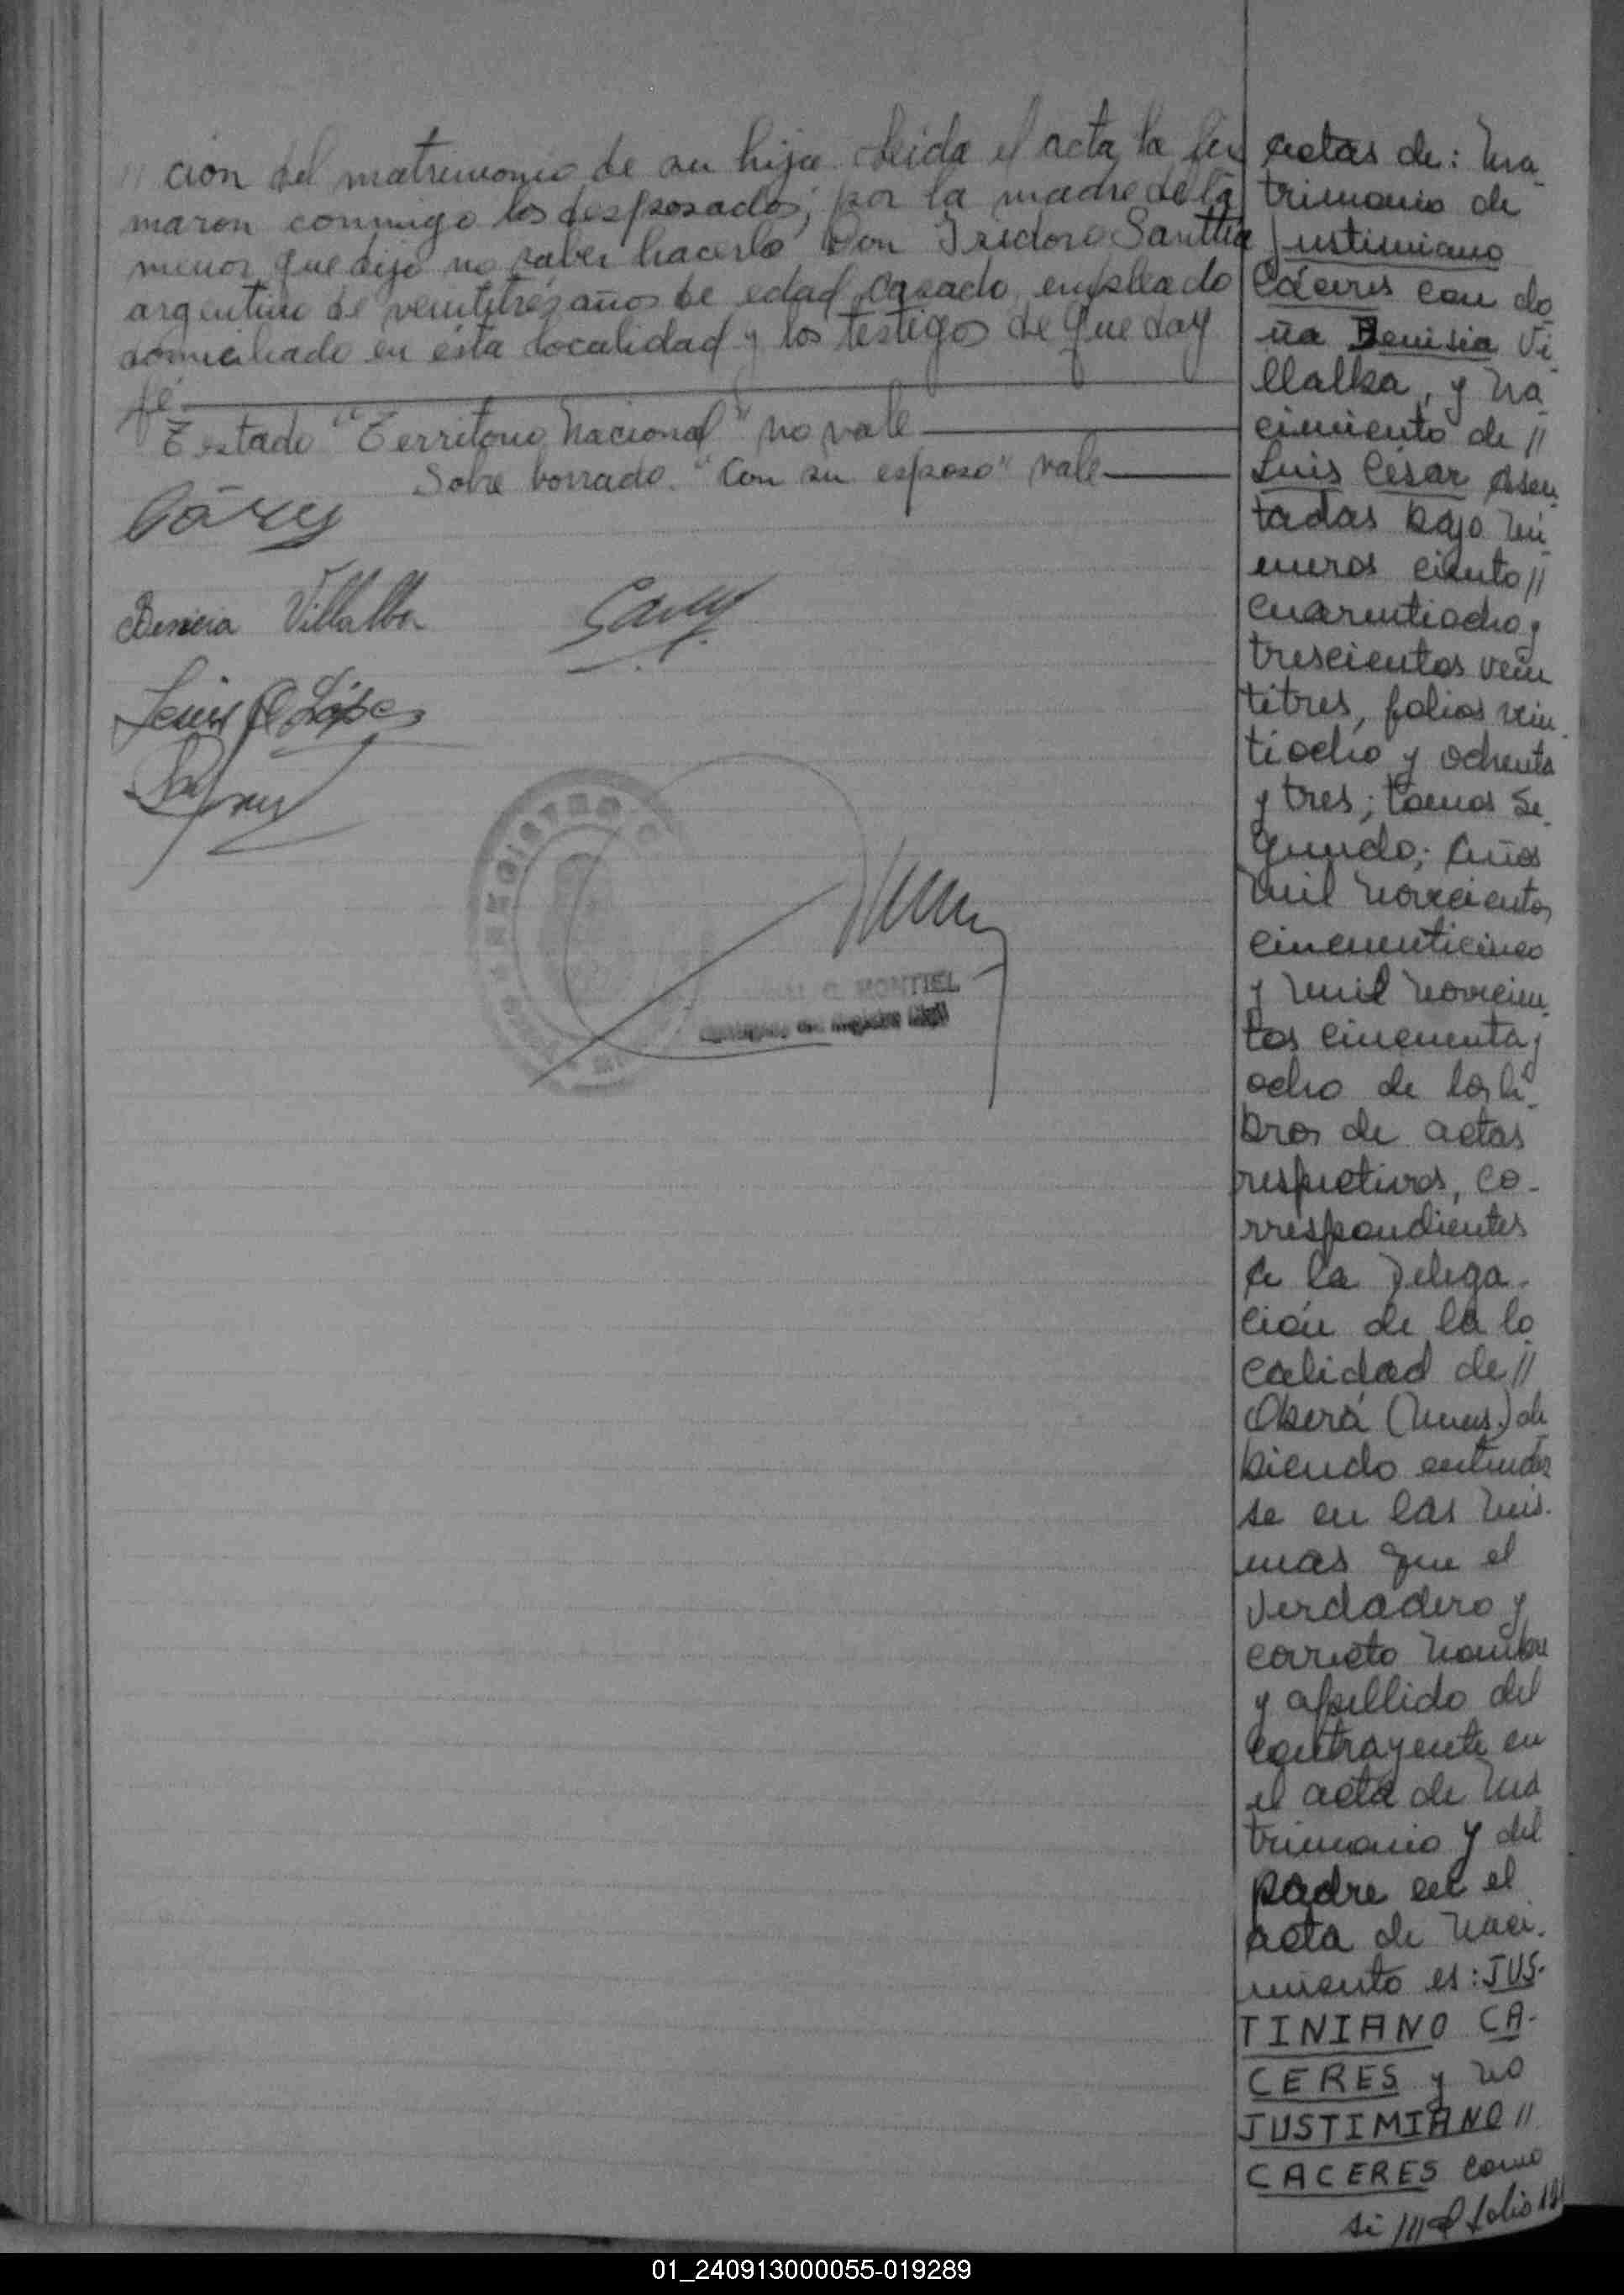 // ción del matrimonio de su hija. Leida el acta, la fir
maron conmigo los desposados; por la madre de la
menor que dijo no saber hacerlo Don Isidoro
argentino de veintitrés años de edad, casado, empleado
domiciliado en ésta localidad y los testigos de que doy
fé
Testado "Territorio Nacional" no vale
Sobre borrado. "Con su esposo" vale
Benicia Villalba
López
REGISTRO C
G. MONTIEL
Registro Civil
actas de: ma
trimonio de
Justimiano
Cáceres con do
ña Benisia Vi
llalba, y na
cimiento de //
Luis César asen
tadas bajo nú
meros ciento //
cuarentiocho y
trescientos vein
titres, folios vein
tiocho y ochenta
y tres; tomos se
gundo; años
mil novecientos
cincuenticinco
y mil novecien
tos cincuenta y
ocho de los li
bros de actas
respectivos, co-
rrespondientes
a la Delega-
ción de la lo
calidad de //
Oberá (Mnes.) de
biendo entender
se en las mis-
mas que el
verdadero y
correcto nombre
y apellido del
contrayente en
el acta de ma
trimonio y del
padre en el
acta de naci-
miento es: JUS-
TINIANO CA-
CERES y no
JUSTIMIANO //
CACERES como
si /// folio
01_240913000055-019289